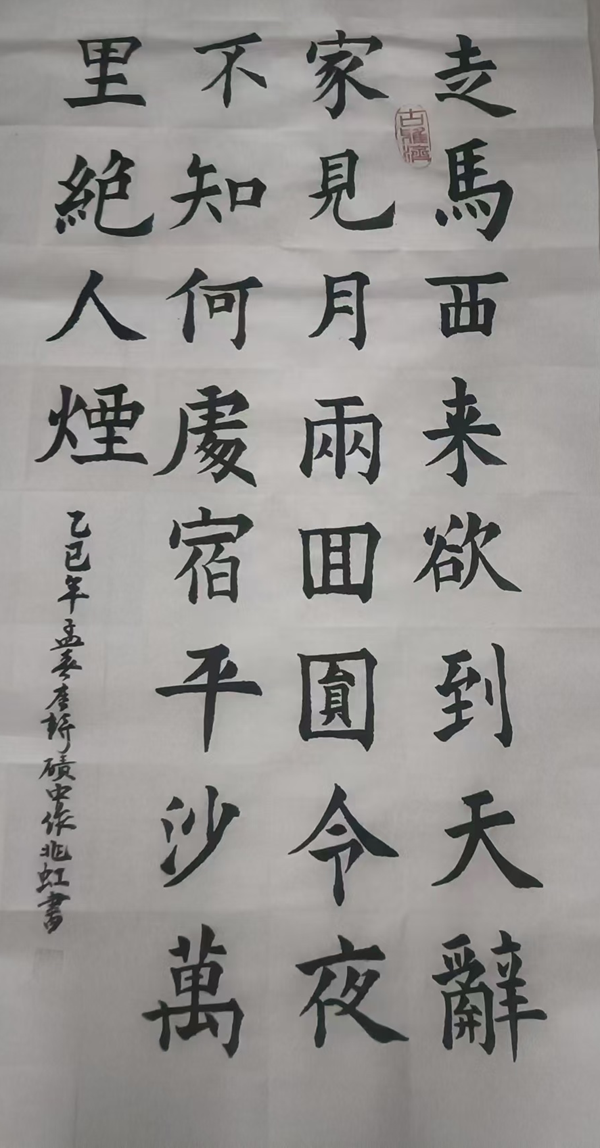 走馬西来欲到天辭
家見月兩囬圓令夜
不知何處宿平沙萬
里絕人煙
乙巳年孟春唐詩磧中作兆虹書